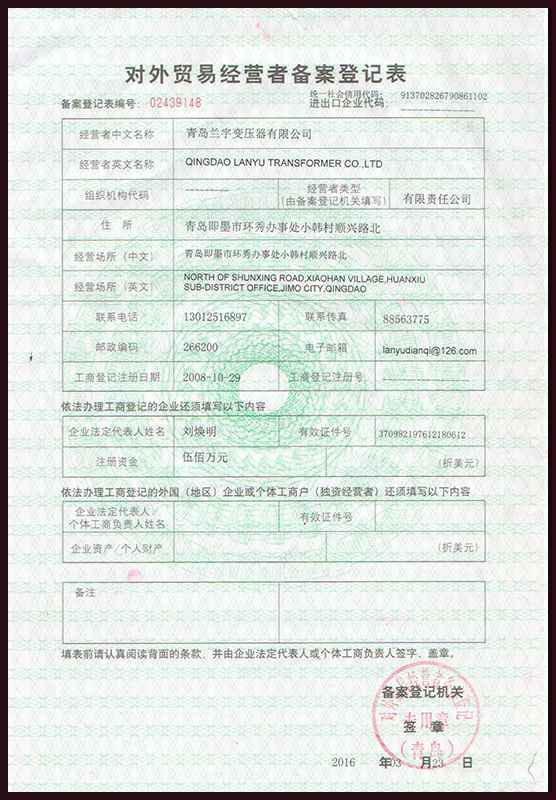 对外贸易经营者备案登记表
备案登记表编号: 02439148
统一社会信用代码: 913702826790861102
进出口企业代码: ----------------
经营者中文名称 青岛兰宇变压器有限公司
经营者英文名称 QINGDAO LANYU TRANSFORMER CO.,LTD
组织机构代码 --------- 经营者类型 (由备案登记机关填写) 有限责任公司
住 所 青岛即墨市环秀办事处小韩村顺兴路北
经营场所(中文) 青岛即墨市环秀办事处小韩村顺兴路北
经营场所(英文) NORTH OF SHUNXING ROAD,XIAOHAN VILLAGE,HUANXIU
SUB-DISTRICT OFFICE,JIMO CITY,QINGDAO
联系电话 13012516897 联系传真 88563775
邮政编码 266200 电子邮箱 lanyudianqi@126.com
工商登记注册日期 2008-10-29 工商登记注册号 ----------------
依法办理工商登记的企业还须填写以下内容
企业法定代表人姓名 刘焕明 有效证件号 370982197612180612
注册资金 伍佰万元 (折美元)
依法办理工商登记的外国(地区)企业或个体工商户(独资经营者)还须填写以下内容
企业法定代表人/
个体工商负责人姓名 有效证件号
企业资产/个人财产 (折美元)
备注
填表前请认真阅读背面的条款,并由企业法定代表人或个体工商负责人签字、盖章。
备案登记机关
专用章
签 章
(青岛)
2016 年03 月23 日